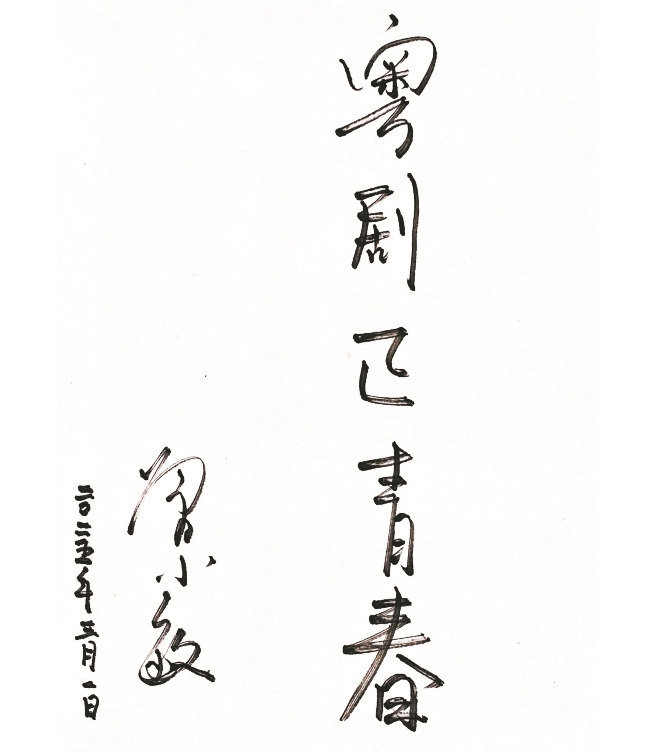 粤剧已青春
曾小敏
二〇二五年三月一日